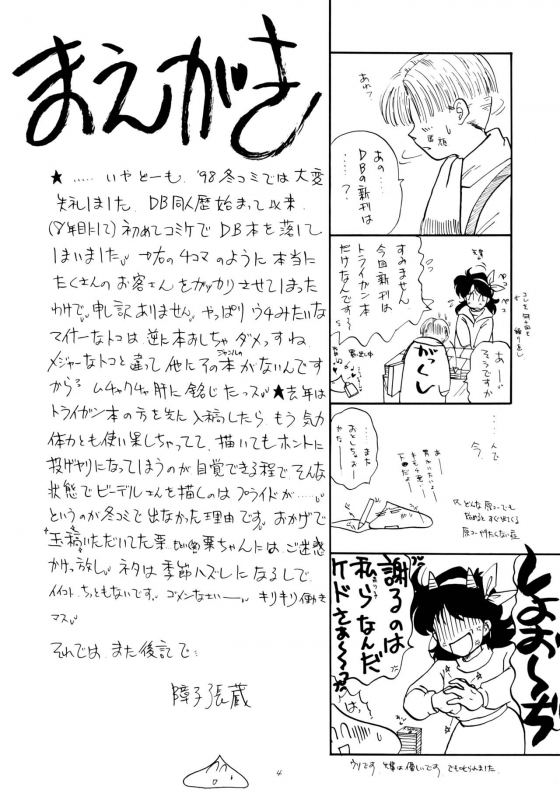 まえがき
★……いやどーも、'98冬コミでは大変
失礼しました。DB同人歴始まって以来
(8年目にして)初めてコミケでDB本を落して
しまいました。→右の4コマのように本当に
たくさんのお客さんをガッカリさせてしまった
わけで。申し訳ありません。やっぱりウチみたいな
マイナーなトコは逆に本おしちゃダメっすね。
メジャーなトコと違って他にその本がないんです
ジャンルの
から。ムチャクチャ肝に銘じたっス。★去年は
トライガン本の方を先に入稿したら、もう気力
体力とも使い果しちゃってて、描いてもホントに
投げヤリになってしまうのが自覚できる程で、そんな
状態でビーデルさんを描くのはプライドが……。
というのが冬コミで出なかった理由です。おかげで
玉稿いただいてた栗ちゃんには、ご迷惑
かけ放し。ネタは季節ハズレになるしで、
イイコト、ちっともないです。ゴメンなさい——。キリキリ働き
マス。
それでは、また後記で…
障子張蔵
4
あれ?
あの……
DBの新刊は
……?
すみません
今回新刊は
トライガン本
だけなんです〜
あ—
そうですか
がっくし
…んで
今、
…また
おとしちゃお—
かな—
しょお〜ち
謝るのは
私らなんだ
ケドさぁ〜〜っ?
は